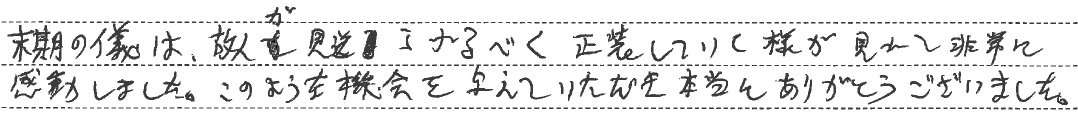 末期の儀は、故人が見送らするべく正装していく様が見れて非常に
感動しました。このような機会を与えていただき本当にありがとうございました。